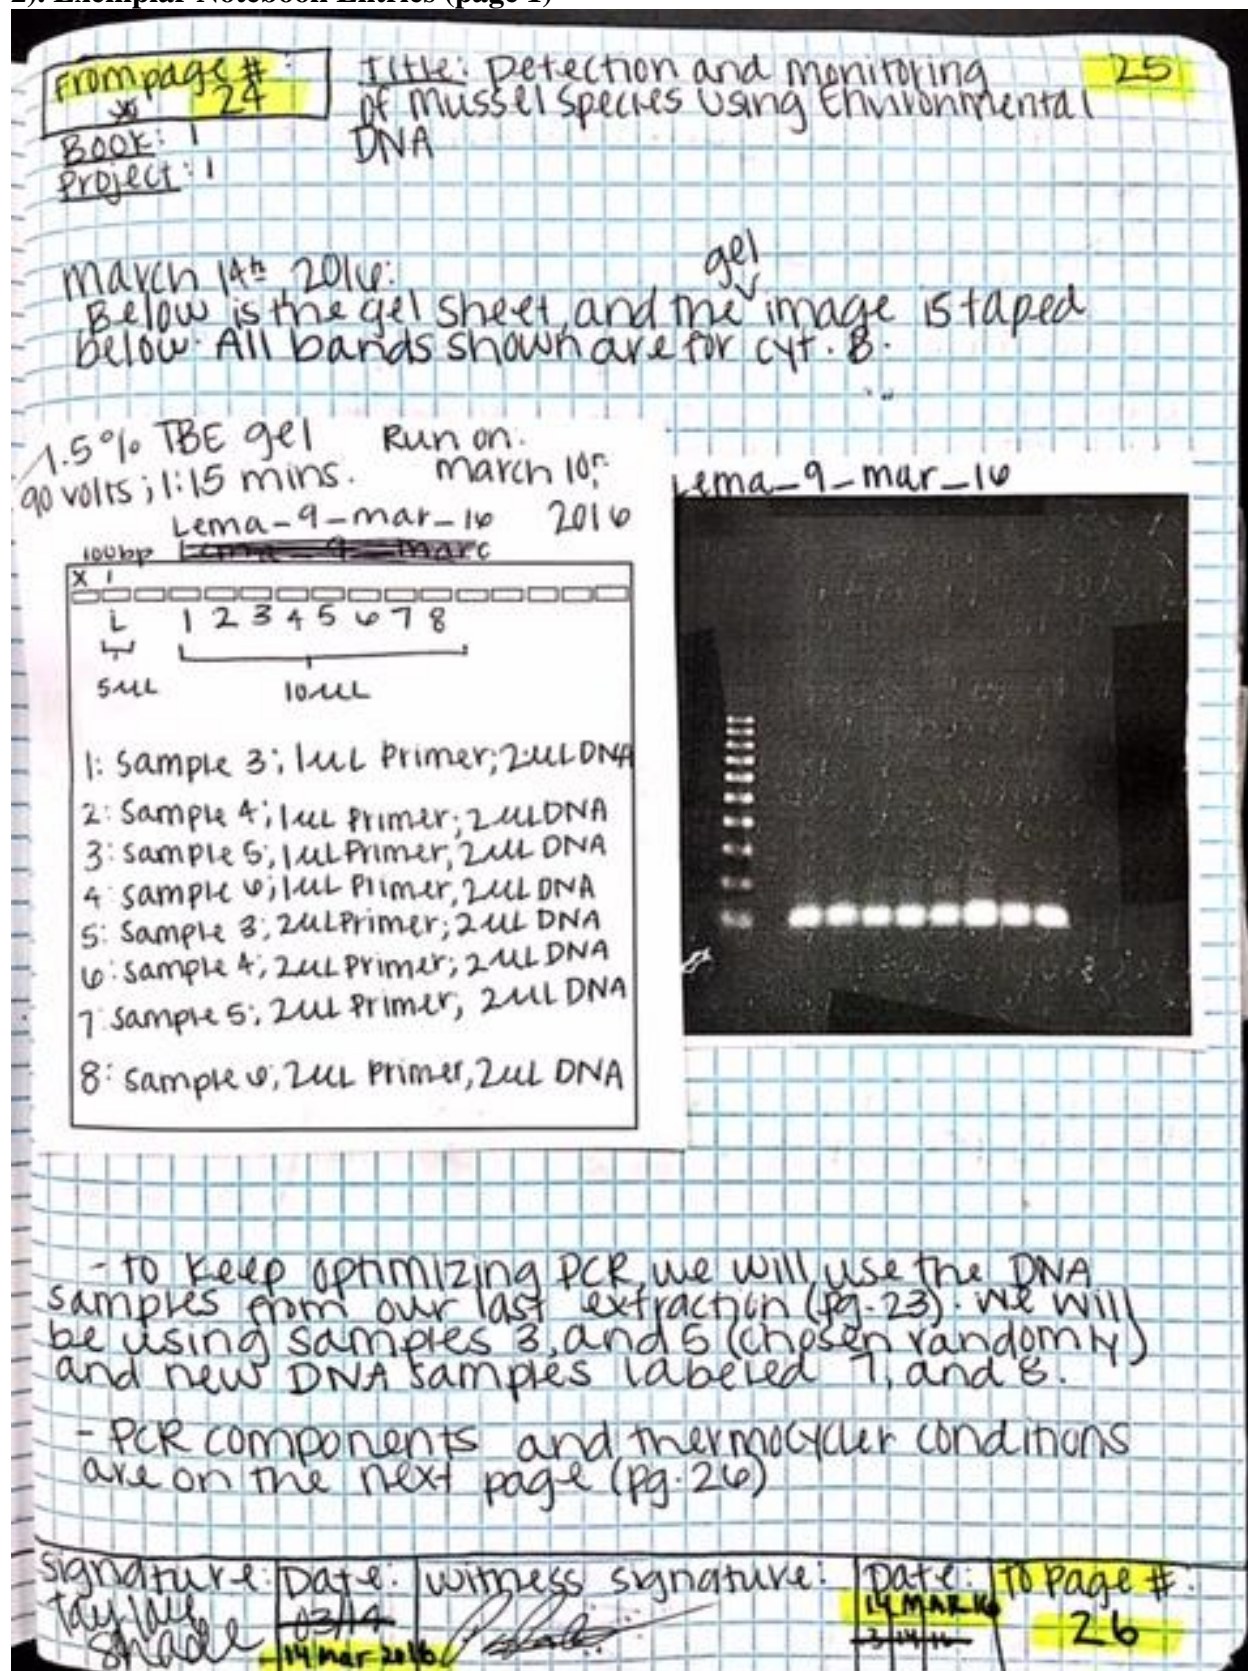 2). Exemplar Notebook Entries (page 1)
From page #:
24
Book: 1
Project: 1
Title: Detection and monitoring
of mussel species using Environmental
DNA
25
march 14th 2016:
Below is the gel sheet, and the gel image is taped
below. All bands shown are for cyt. B.
1.5% TBE gel Run on:
90 volts; 1:15 mins. march 10th
2016
Lema_9_mar_16
Lema_9_marc
100bp
X
L 1 2 3 4 5 6 7 8
5uL 10uL
1: Sample 3; 1uL Primer; 2uL DNA
2: Sample 4; 1uL Primer; 2uL DNA
3: Sample 5; 1uL Primer; 2uL DNA
4: Sample 6; 1uL Primer, 2uL DNA
5: Sample 3; 2uL Primer; 2uL DNA
6: Sample 4; 2uL Primer; 2uL DNA
7: Sample 5; 2uL Primer; 2uL DNA
8: Sample 6; 2uL Primer, 2uL DNA
Lema_9_mar_16
- To keep optimizing PCR, we will use the DNA
samples from our last extraction (pg. 23). We will
be using samples 3, and 5 (chosen randomly)
and new DNA samples labeled 7, and 8.
- PCR components and thermocycler conditions
are on the next page (pg. 26)
Signature:
Shade
Date:
03/14
14 Mar 2016
witness signature:
Date:
14 MAR 16
3-14-16
To page #:
26